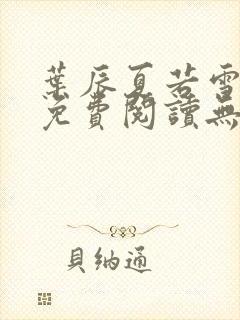 葉辰夏若雪
免費閱讀無
貝納通